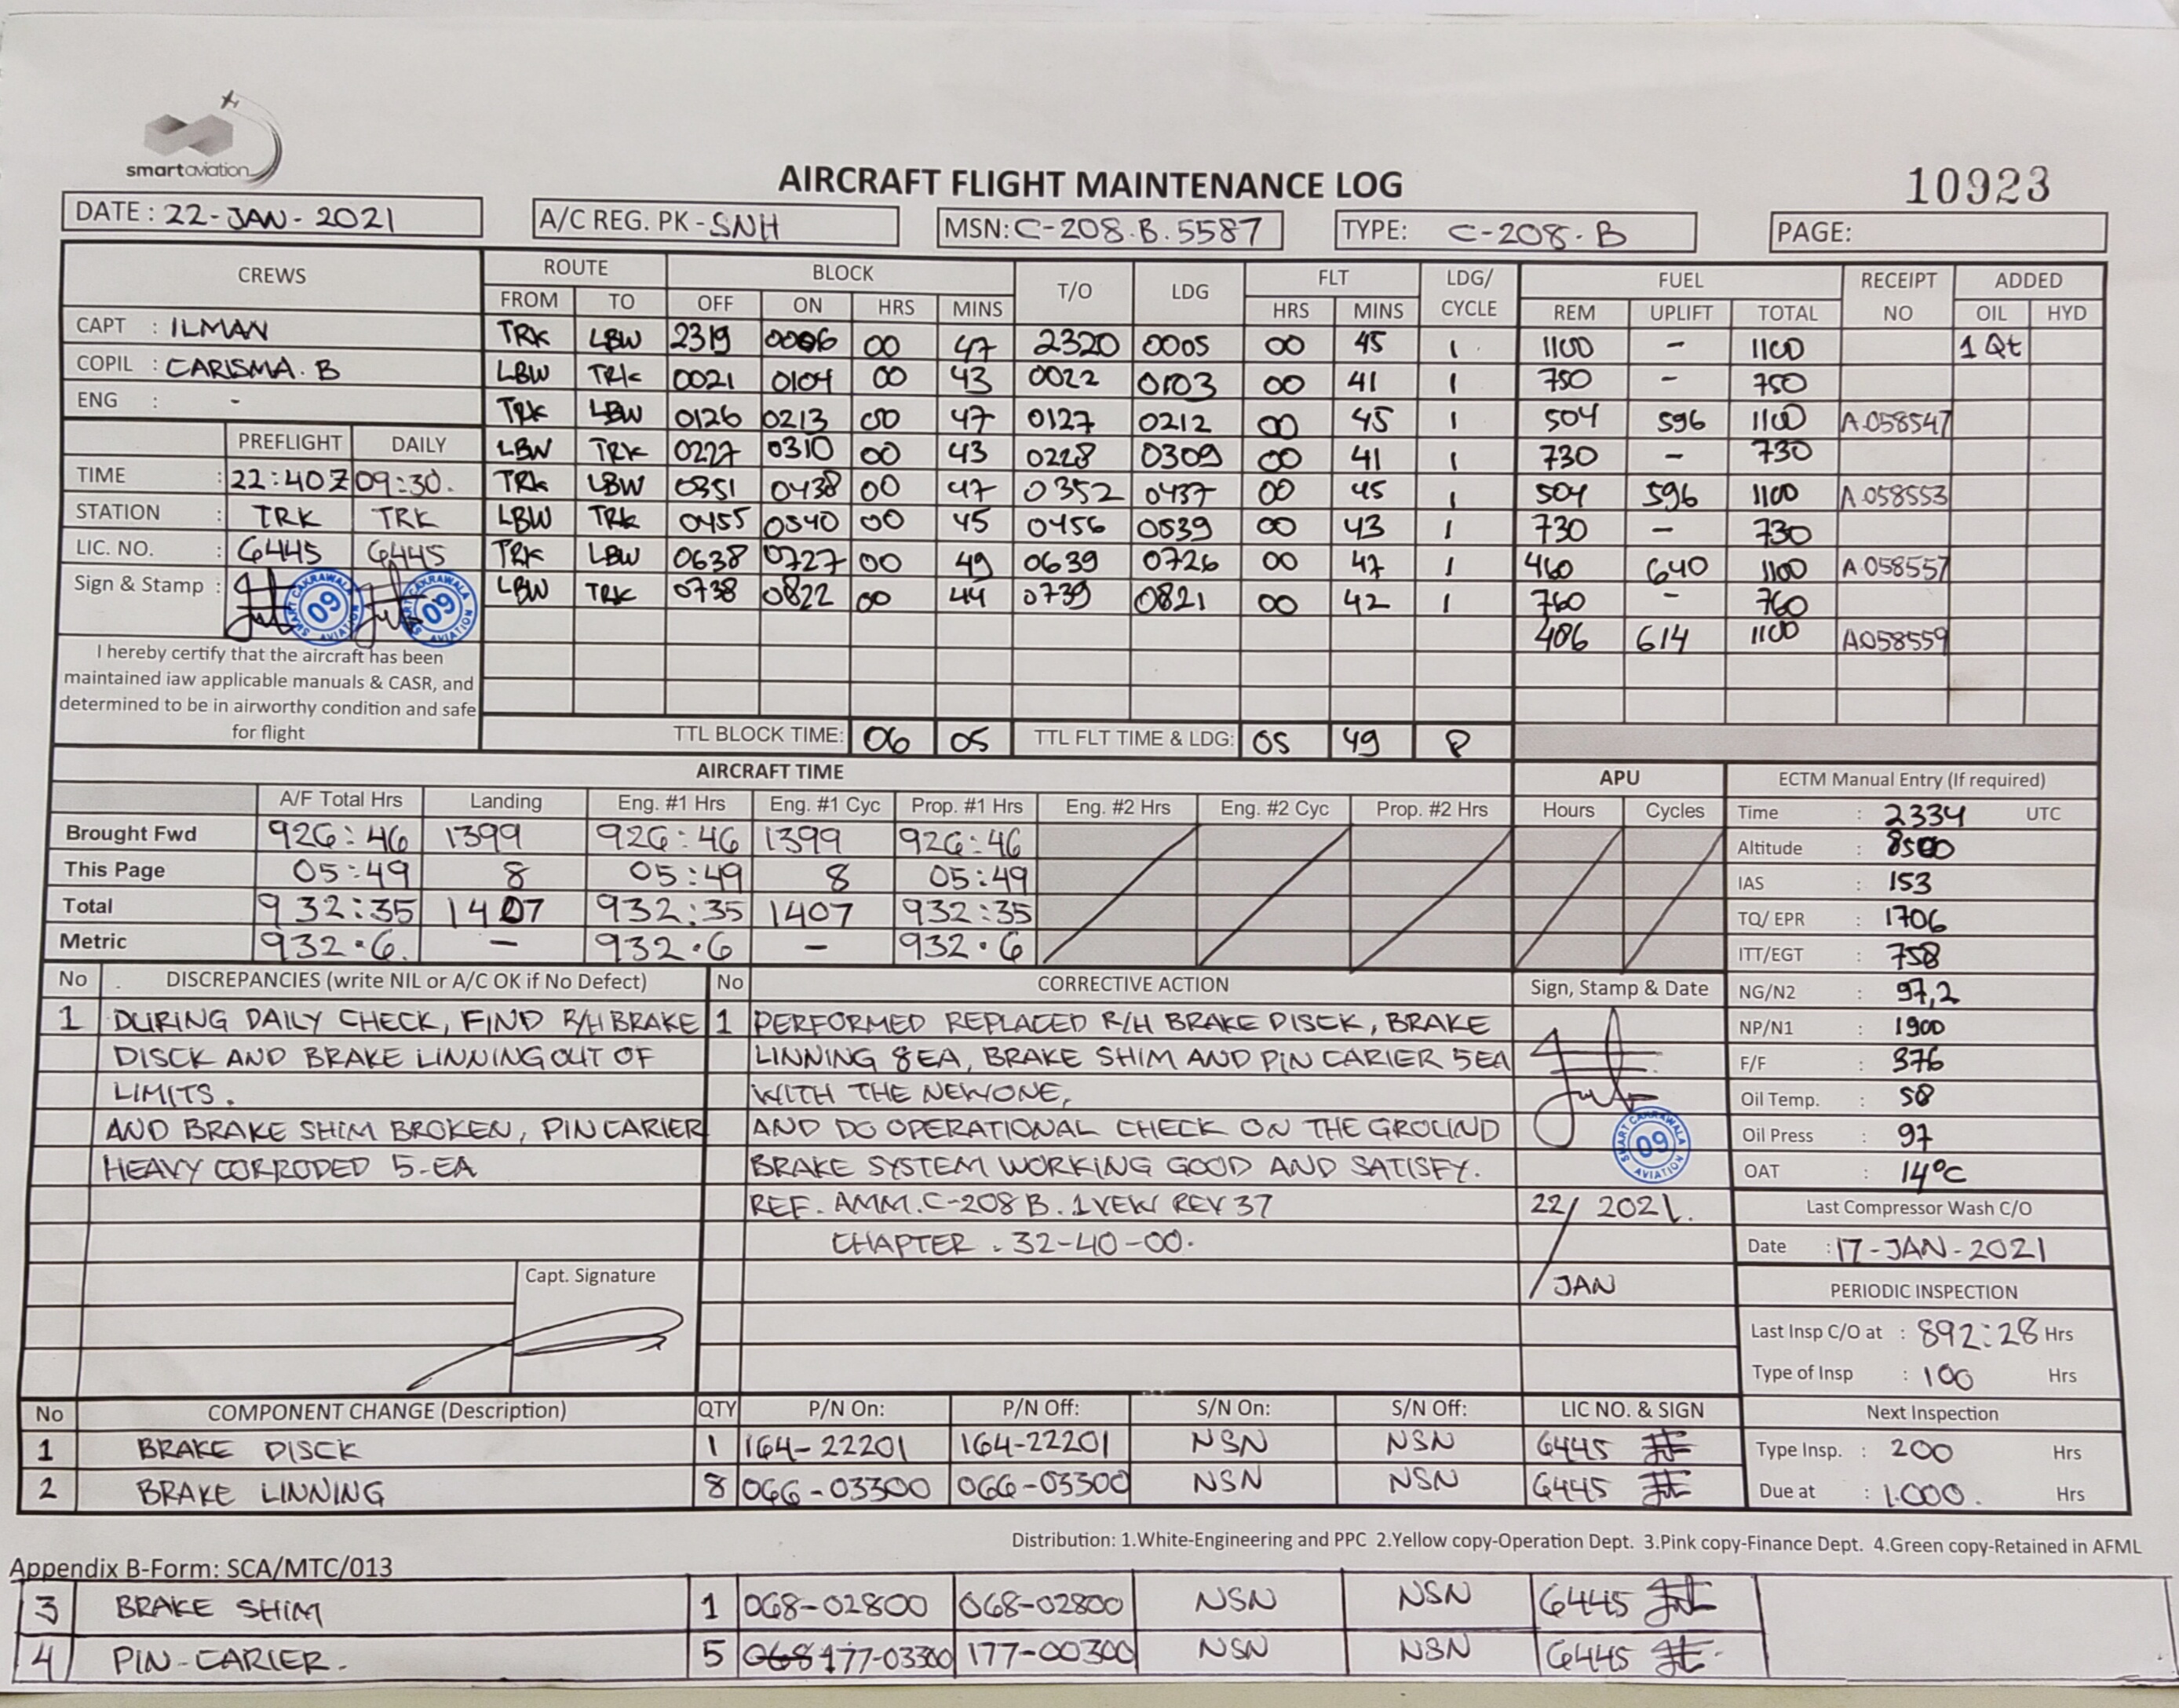 smartaviation
AIRCRAFT FLIGHT MAINTENANCE LOG
10923
DATE : 22-JAN-2021 A/C REG. PK-SNH MSN: C-208.B.5587 TYPE: C-208.B PAGE:
CREWS ROUTE BLOCK T/O LDG FLT LDG/ CYCLE FUEL RECEIPT NO ADDED
FROM TO OFF ON HRS MINS HRS MINS REM UPLIFT TOTAL OIL HYD
CAPT : ILMAN
COPIL : CARISMA. B
ENG : -
TRK LBW 2319 0006 00 47 2320 0005 00 45 1 1100 - 1100 1 Qt
LBW TRK 0021 0104 00 43 0022 0103 00 41 1 750 - 750
TRK LBW 0126 0213 00 47 0127 0212 00 45 1 504 596 1100 A.058547
LBW TRK 0227 0310 00 43 0228 0309 00 41 1 730 - 730
TRK LBW 0351 0438 00 47 0352 0437 00 45 1 504 596 1100 A.058553
LBW TRK 0455 0540 00 45 0456 0539 00 43 1 730 - 730
TRK LBW 0638 0727 00 49 0639 0726 00 47 1 460 640 1100 A.058557
LBW TRK 0738 0822 00 44 0739 0821 00 42 1 760 - 760
486 614 1100 A058559
PREFLIGHT DAILY
TIME : 22:40Z 09:30.
STATION : TRK TRK
LIC. NO. : 6445 6445
Sign & Stamp :
SMART CAKRAWALA AVIATION 09
SMART CAKRAWALA AVIATION 09
I hereby certify that the aircraft has been
maintained iaw applicable manuals & CASR, and
determined to be in airworthy condition and safe
for flight
TTL BLOCK TIME: 06 05 TTL FLT TIME & LDG: 05 49 8
AIRCRAFT TIME APU
A/F Total Hrs Landing Eng. #1 Hrs Eng. #1 Cyc Prop. #1 Hrs Eng. #2 Hrs Eng. #2 Cyc Prop. #2 Hrs Hours Cycles
Brought Fwd 926:46 1399 926:46 1399 926:46
This Page 05:49 8 05:49 8 05:49
Total 932:35 1407 932:35 1407 932:35
Metric 932.6. - 932.6 - 932.6
ECTM Manual Entry (If required)
Time : 2334 UTC
Altitude : 8500
IAS : 153
TQ/ EPR : 1706
ITT/EGT : 758
NG/N2 : 97,2
NP/N1 : 1900
F/F : 376
Oil Temp. : 58
Oil Press : 97
OAT : 14°C
Last Compressor Wash C/O
Date : 17-JAN-2021
PERIODIC INSPECTION
Last Insp C/O at : 892:28 Hrs
Type of Insp : 100 Hrs
Next Inspection
Type Insp. : 200 Hrs
Due at : 1.000. Hrs
No . DISCREPANCIES (write NIL or A/C OK if No Defect)
1 DURING DAILY CHECK, FIND R/H BRAKE
DISCK AND BRAKE LINNING OUT OF
LIMITS.
AND BRAKE SHIM BROKEN, PIN CARIER
HEAVY CORRODED 5-EA
Capt. Signature
No CORRECTIVE ACTION Sign, Stamp & Date
1 PERFORMED REPLACED R/H BRAKE DISCK, BRAKE
LINNING 8EA, BRAKE SHIM AND PIN CARIER 5EA
WITH THE NEWONE,
AND DO OPERATIONAL CHECK ON THE GROUND
BRAKE SYSTEM WORKING GOOD AND SATISFY.
REF. AMM.C-208 B. 1VEW REV 37
CHAPTER . 32-40-00.
SMART CAKRAWALA AVIATION 09
22/ 2021.
/JAN
No COMPONENT CHANGE (Description) QTY P/N On: P/N Off: S/N On: S/N Off: LIC NO. & SIGN
1 BRAKE DISCK 1 164-22201 164-22201 NSN NSN 6445
2 BRAKE LINNING 8 066-03300 066-03300 NSN NSN 6445
Distribution: 1.White-Engineering and PPC 2.Yellow copy-Operation Dept. 3.Pink copy-Finance Dept. 4.Green copy-Retained in AFML
Appendix B-Form: SCA/MTC/013
3 BRAKE SHIM 1 068-02800 068-02800 NSN NSN 6445
4 PIN-CARIER. 5 068 177-03300 177-00300 NSN NSN 6445